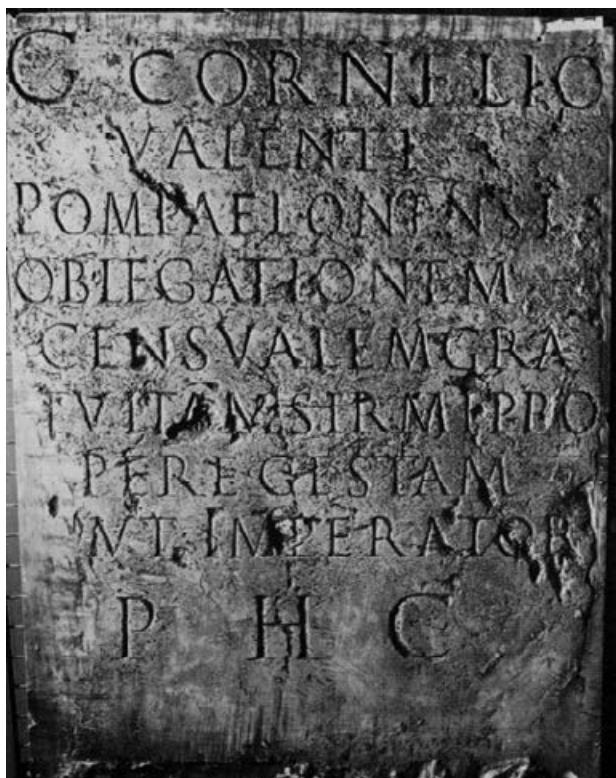 G CORNELIO
VALENTI
POMPAELONENSI
OB LEGATIONEM
CENSVALEM GRA
TVITAM SIRMI PRO
PERE GESTAM
IMPERATOR
P H C